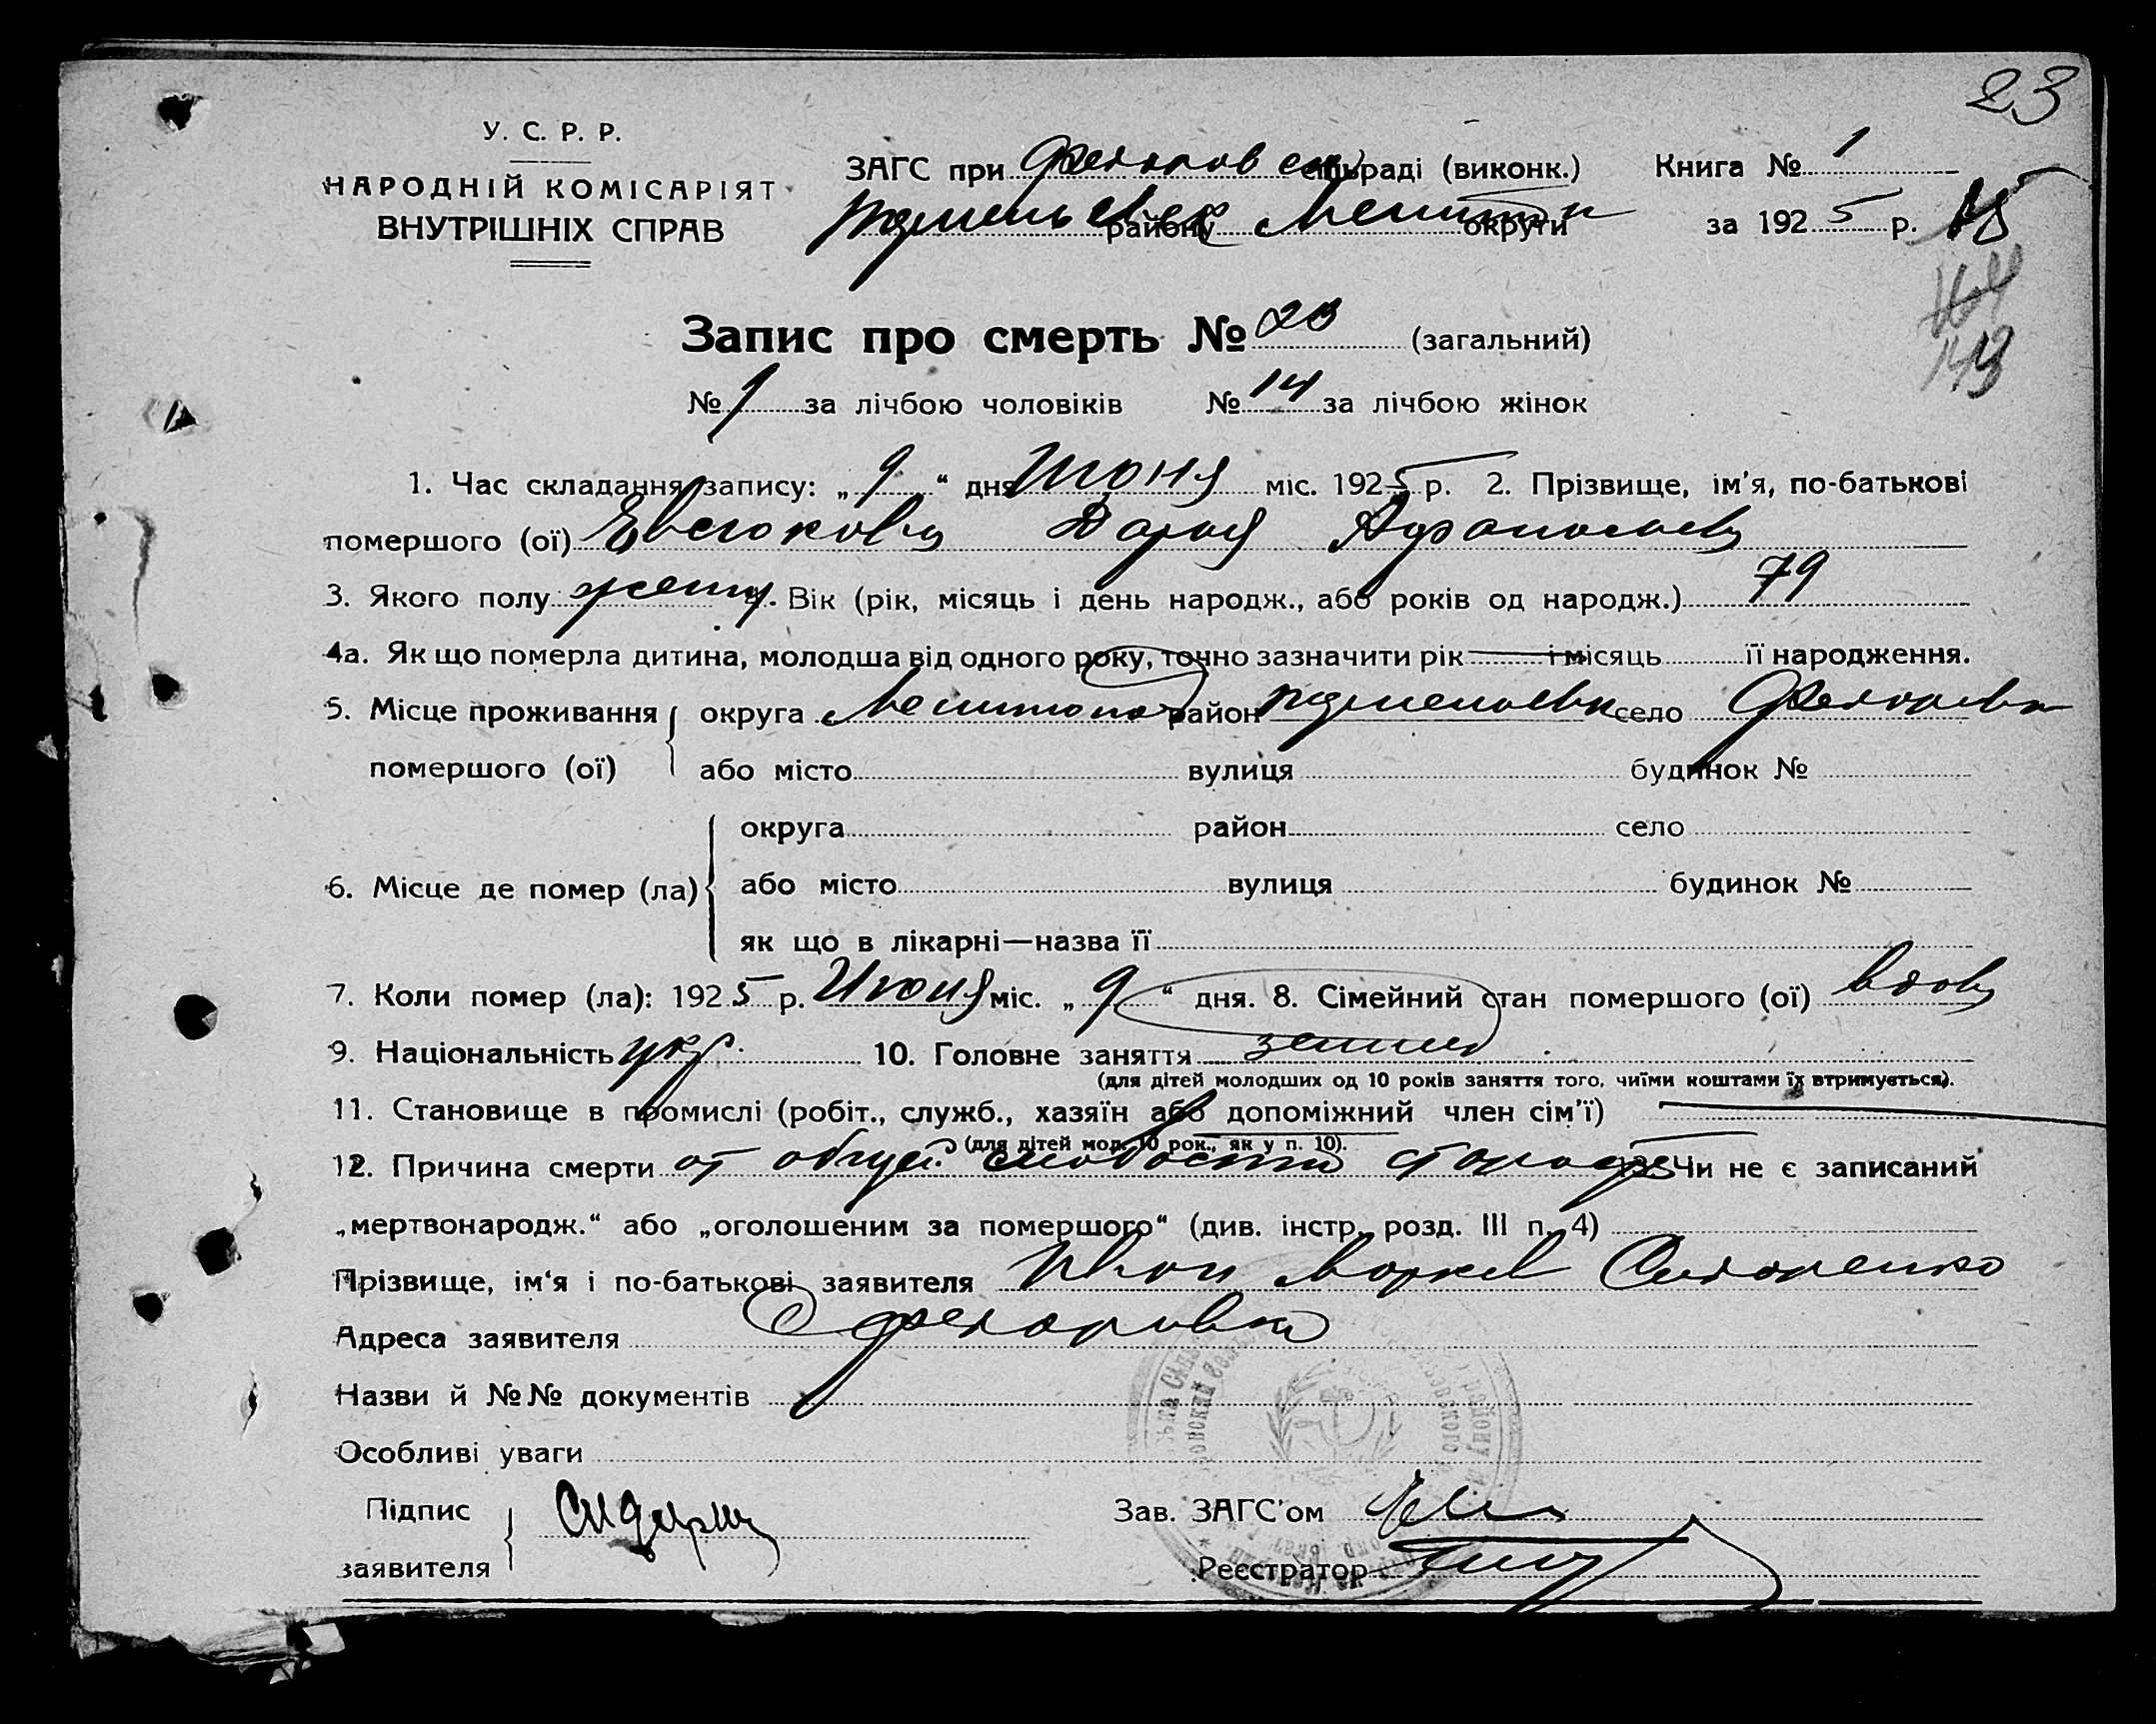 23
У. С. Р. Р.
НАРОДНІЙ КОМІСАРІЯТ
ВНУТРІШНІХ СПРАВ
ЗАГС при Федоровск сільраді (виконк.) Книга № 1
району Мелитоп округи за 1925 р.
Запис про смерть № 23 (загальний)
№ за лічбою чоловіків № 14 за лічбою жінок
1. Час складання запису: „9“ дня Июня міс. 1925 р. 2. Прізвище, ім’я, по-батькові
помершого (ої) Евсюкова Дарья Афанасьев
3. Якого полу женщ. Вік (рік, місяць і день народж., або років од народж.) 79
4а. Як що померла дитина, молодша від одного року, точно зазначити рік і місяць її народження.
5. Місце проживання округа Мелитопол район село Федоровка
помершого (ої) або місто вулиця будинок №
округа район село
6. Місце де помер (ла) або місто вулиця будинок №
як що в лікарні—назва її
7. Коли помер (ла): 1925 р. Июня міс. „9“ дня. 8. Сімейний стан помершого (ої) вдова
9. Національність укр. 10. Головне заняття
(для дітей молодших од 10 років заняття того, чиїми коштами їх втримується).
11. Становище в промислі (робіт., служб., хазяїн або допоміжний член сім’ї)
(для дітей мол. 10 рок., як у п. 10).
12. Причина смерти от общей слабости Чи не є записаний
„мертвонародж.“ або „оголошеним за помершого“ (див. інстр. розд. III п. 4)
Прізвище, ім‘я і по-батькові заявителя Иван Марков Сидоренко
Адреса заявителя С Федоровка
Назви й №№ документів
Особливі уваги
Підпис
заявителя
Зав. ЗАГС’ом
Реєстратор